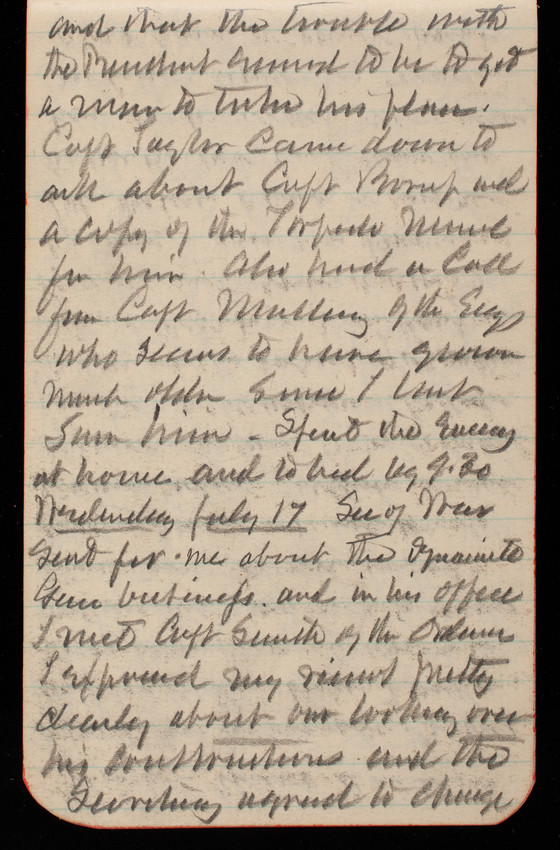 and that the trouble with
the President seemed to be to get
a man to take his place.
Capt Taylor came down to
ask about Capt and
a copy of the Torpedo Manual
for him. Also had a Call
from Capt of the Eng
who seems to have grown
much older since I last
saw him - Spent the Evening
at home and to bed by 9.30
Wednesday July 17 Sec of War
sent for me about the dynamite
Gun business. and in his office
I met Capt Smith of the Ordnan
I expressed my views pretty
clearly about our looking over
his constructions and the
Secretary agreed to change